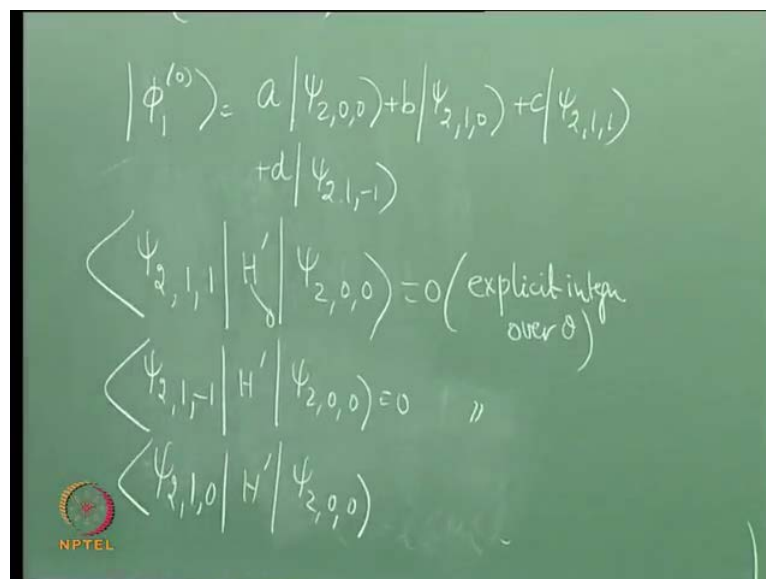 |ϕ₁⁽⁰⁾⟩ = a|Ψ₂,₀,₀⟩+b|Ψ₂,₁,₀⟩+c|Ψ₂,₁,₁⟩
+d|Ψ₂.₁,₋₁⟩
⟨Ψ₂,₁,₁|H′|Ψ₂,₀,₀⟩=0(explicit integn
over θ)
⟨Ψ₂,₁,₋₁|H′|Ψ₂,₀,₀⟩=0 〃
⟨Ψ₂,₁,₀|H′|Ψ₂,₀,₀⟩
NPTEL